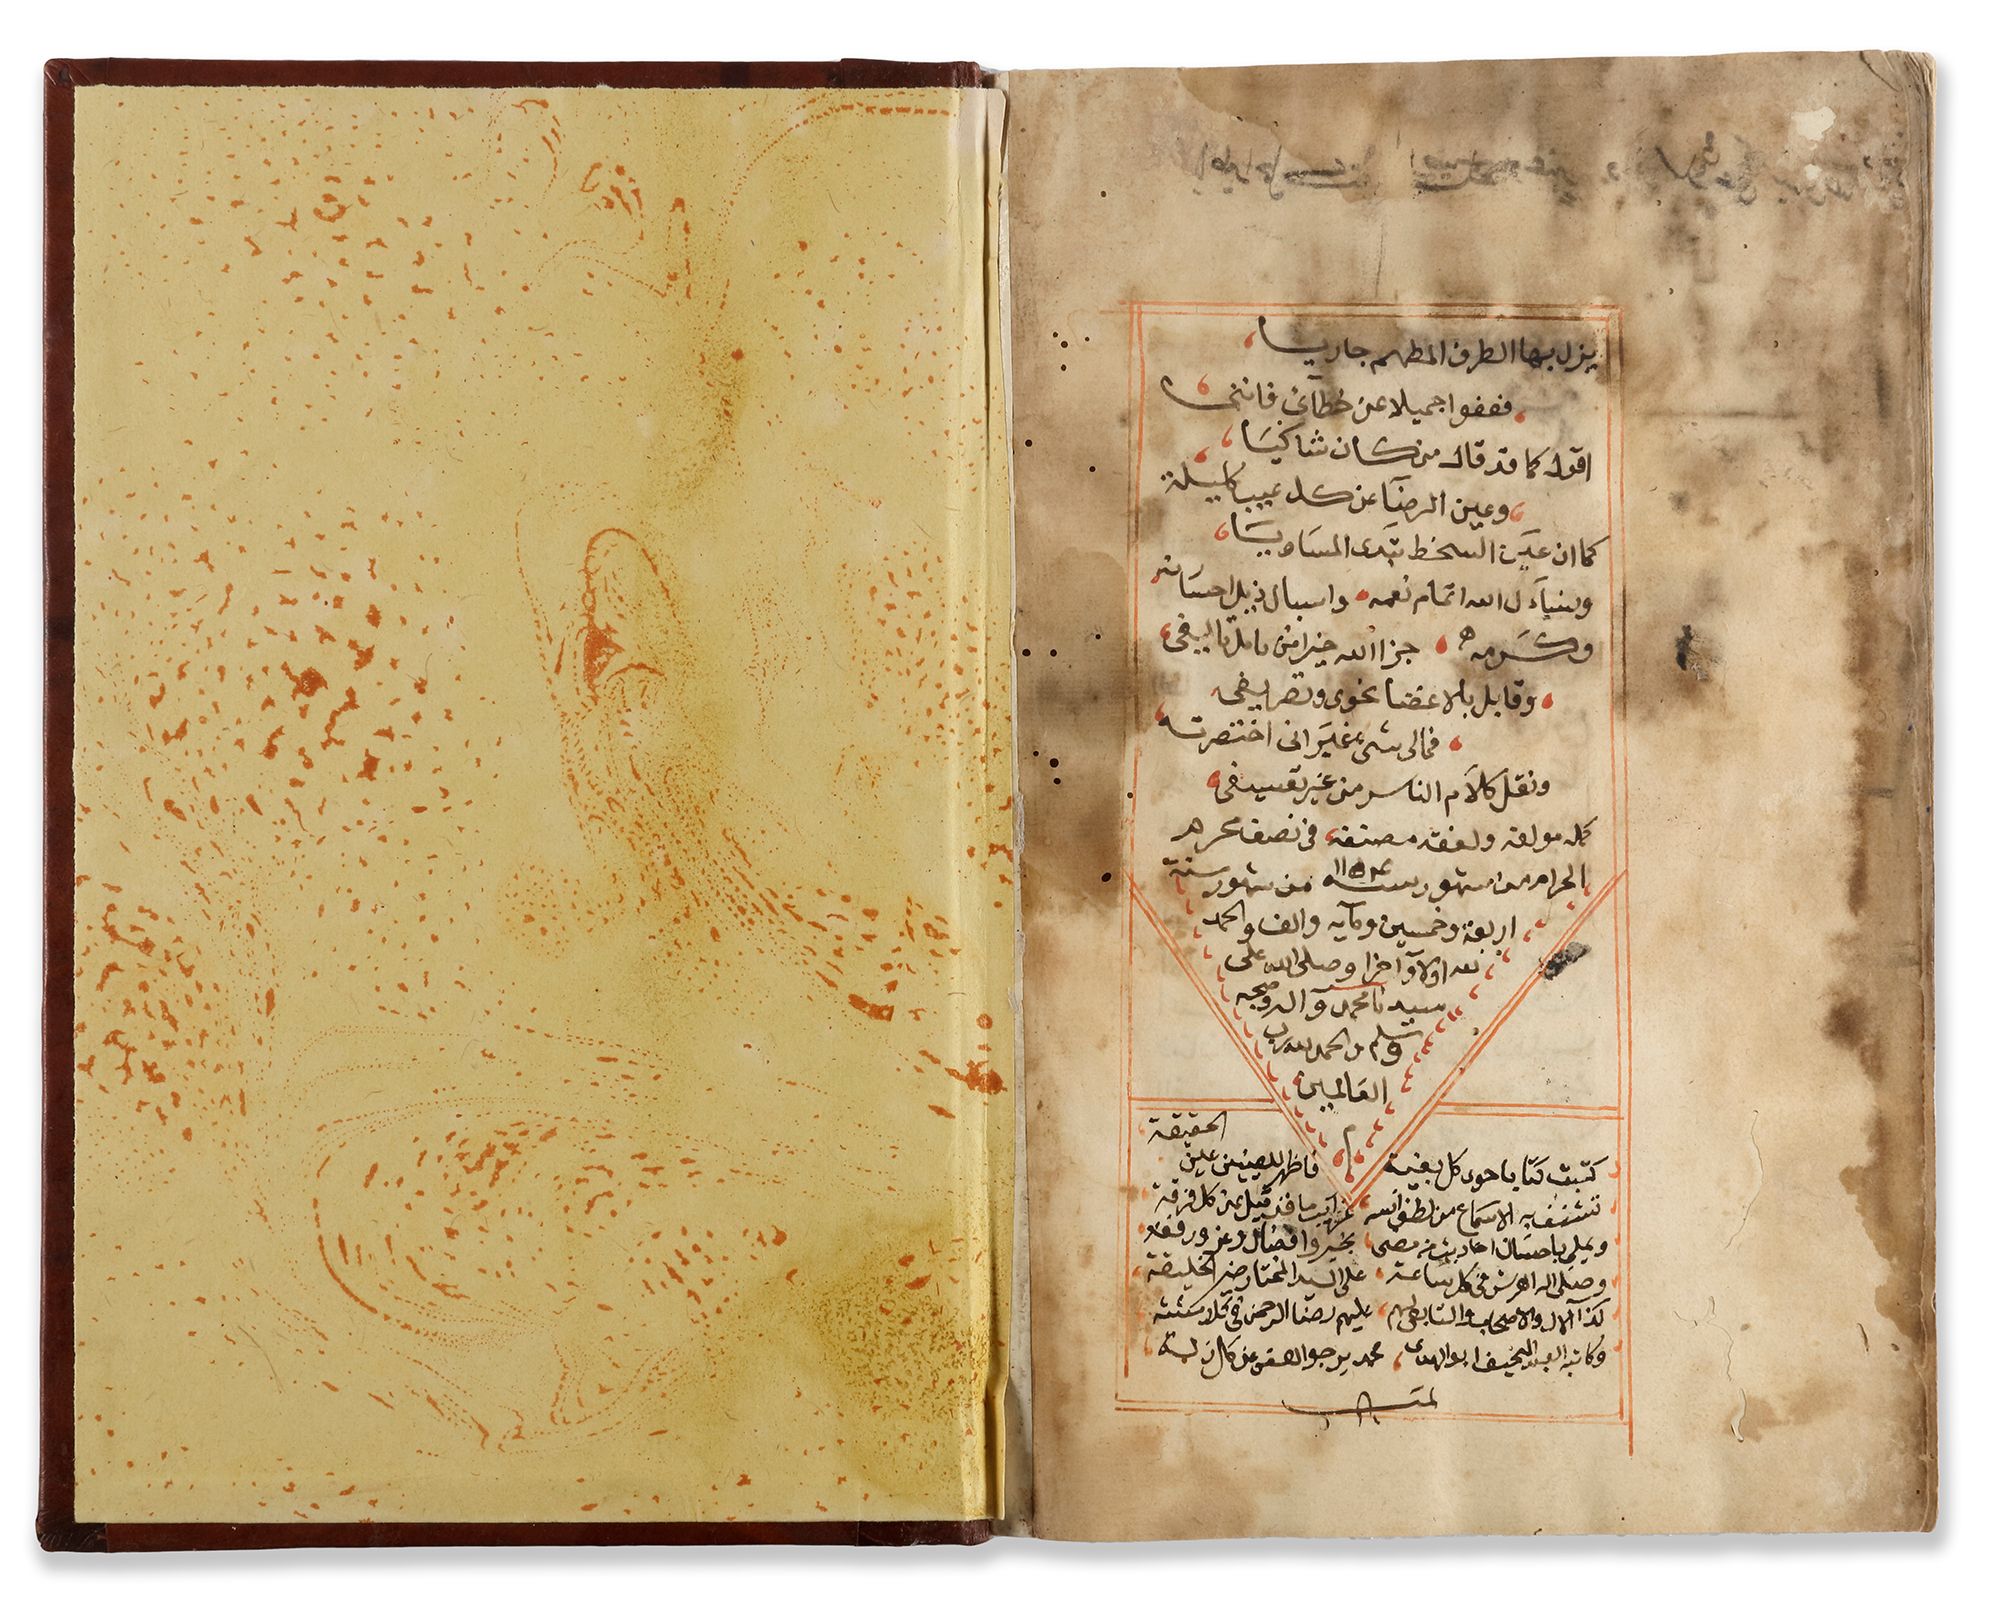 يزل بها الطرف المطهم جاريا
فعفوا جميلا عن خطآئ فانني
اقول كما قد قال من كان شاكيا
وعين الرضا عن كل عيب كليلة
كما ان عين السخط تبدى المساويا
ونساءل الله اتمام نعمه واسبال ذيل احسانه
وكرمه جزا الله خيرا من تاليفى
وقابل بالاغضا نحوى وتصريفى
فمالى شىء غير انى اختصرته
ونقل كلام الناس من غير تعسيفى
كمله مولفه ولفقه مصنفه فى نصف محرم
الحرام من شهور سنه ١١٥٤ من شهور سنة
اربعة وخمسين ومايه والف والحمد
لله اولا وآخرا وصلى الله على
سيدنا محمد وآله وصحبه
وسلم والحمد لله رب
العالمين
م
كتبت كتابا حوى كل بغية فاظهر عين الحقيقة
تشنف به الاسماع من لطف انسه غرايب ما قد قيل عن كل فرقة
ويملى باحسان احاديث من مضى بخير وافضال وعز ورفعة
وصلى اله العرش فى كل ساعة على السيد المختار خير الخليقة
كذا الآل والاصحاب والتابعى لهم عليهم رضا الرحمن فى كل
وكاتبه العبد ابو الهدى محمد يرجو العفو عن كل زلة
تمت